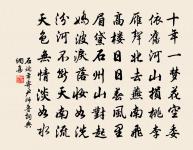 十年一夢花空委
依舊河山損桃李
雁聲北去燕西飛
高樓日日春風裏
眉黛石州山對起
嬌波淚落妝如洗
汾河不斷天南流
天色無情淡如水